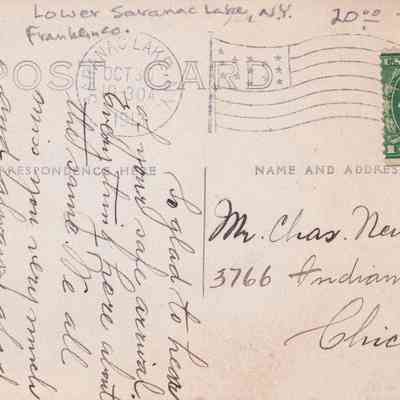 Lower Saranac Lake, N.Y. 20.00
Franklin co.
POST CARD
SARANAC LAKE
OCT 3
8 30A
191
RRESPONDENCE HERE
NAME AND ADDRESS
So glad to hear
of your safe arrival.
Everything here about
the same. We all
miss you very much
Mr. Chas. New
3766 Indian
Chic